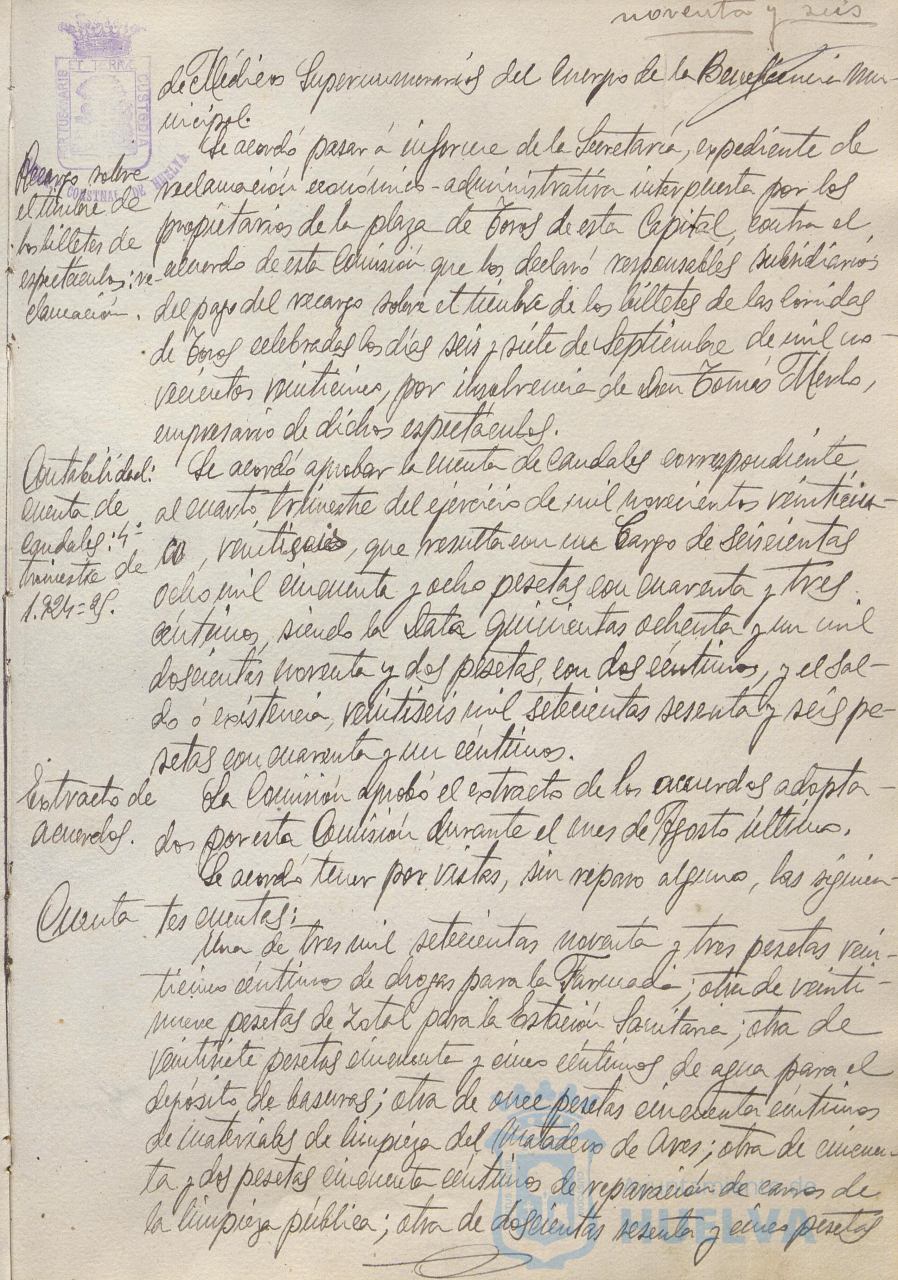 noventa y seis
de Médicos Supernumerarios del Cuerpo de la Beneficencia Mu-
nicipal.
Recargo sobre
el timbre de
los billetes de
espectáculos: re-
clamación.
Se acordó pasar á informe de la Secretaría, expediente de
reclamación económico-administrativa interpuesta por los
propietarios de la plaza de Toros de esta Capital, contra el
acuerdo de esta Comisión que los declaró responsables subsidiarios
del pago del recargo sobre el timbre de los billetes de las corridas
de Toros celebradas los días seis y siete de Septiembre de mil no-
vecientos veinticinco, por insolvencia de Don Tomás Merlo,
empresario de dichos espectáculos.
Contabilidad:
cuenta de
caudales: 4º
trimestre de
1.924=25.
Se acordó aprobar la cuenta de caudales correspondiente
al cuarto trimestre del ejercicio de mil novecientos veinticin-
co, veintiseis, que resulta con un Cargo de seiscientas
ocho mil cincuenta y ocho pesetas con cuarenta y tres
céntimos, siendo la Data quinientas ochenta y un mil
doscientas noventa y dos pesetas, con dos céntimos, y el sal-
do ó existencia, veintiseis mil setecientas sesenta y seis pe-
setas con cuarenta y un céntimos.
Extracto de
acuerdos.
La Comisión aprobó el extracto de los acuerdos adopta-
dos por esta Comisión durante el mes de Agosto último.
Cuenta
Se acordó tener por vistas, sin reparo alguno, las siguien-
tes cuentas:
Una de tres mil setecientas noventa y tres pesetas vein-
ticinco céntimos de drogas para la Farmacia; otra de veinti-
nueve pesetas de Zotal para la Estación Sanitaria; otra de
veintisiete pesetas cincuenta y cinco céntimos de agua para el
depósito de basuras; otra de once pesetas cincuenta céntimos
de materiales de limpieza del Matadero de Aves; otra de cincuen-
ta y dos pesetas cincuenta céntimos de reparación de carros de
la limpieza pública; otra de doscientas sesenta y cinco pesetas
HUELVA